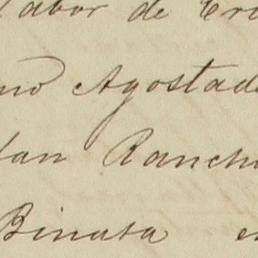 labor de Cri
no Agostade
dan Ranch
Binata e